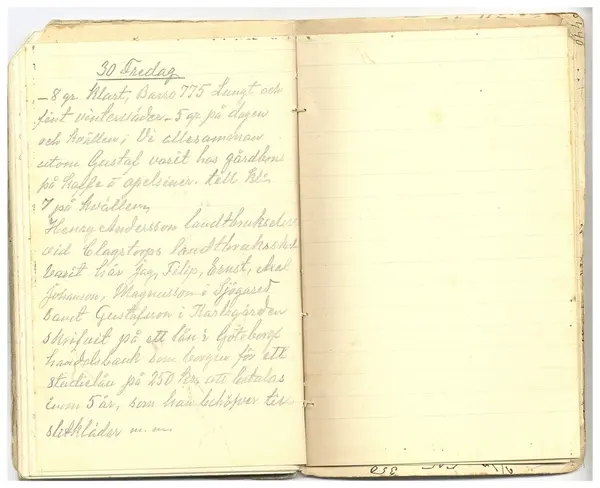 30 Fredag
- 8 gr. Klart, Baro 775 Lungt och
fint vinterväder. 5 gr på dagen
och kvällen; Vi allesamman
utom Gustaf varit hos gårdbon
på kaffe o apelsiner. till Kl:
7 på kvällen,
Henry Andersson landtbrukselev
vid Clagstorps landtbruksskol
varit här Jag, Filip, Ernst, Axel
Johanson, Magnusson i Sjögared
samt Gustafson i Karlsgården
skrifvit på ett lån i Göteborgs
handelsbank som borgen för ett
studielån på 250 Kr, att betalas
inom 5 år, som han behöfver till
slitkläder m. m.
350